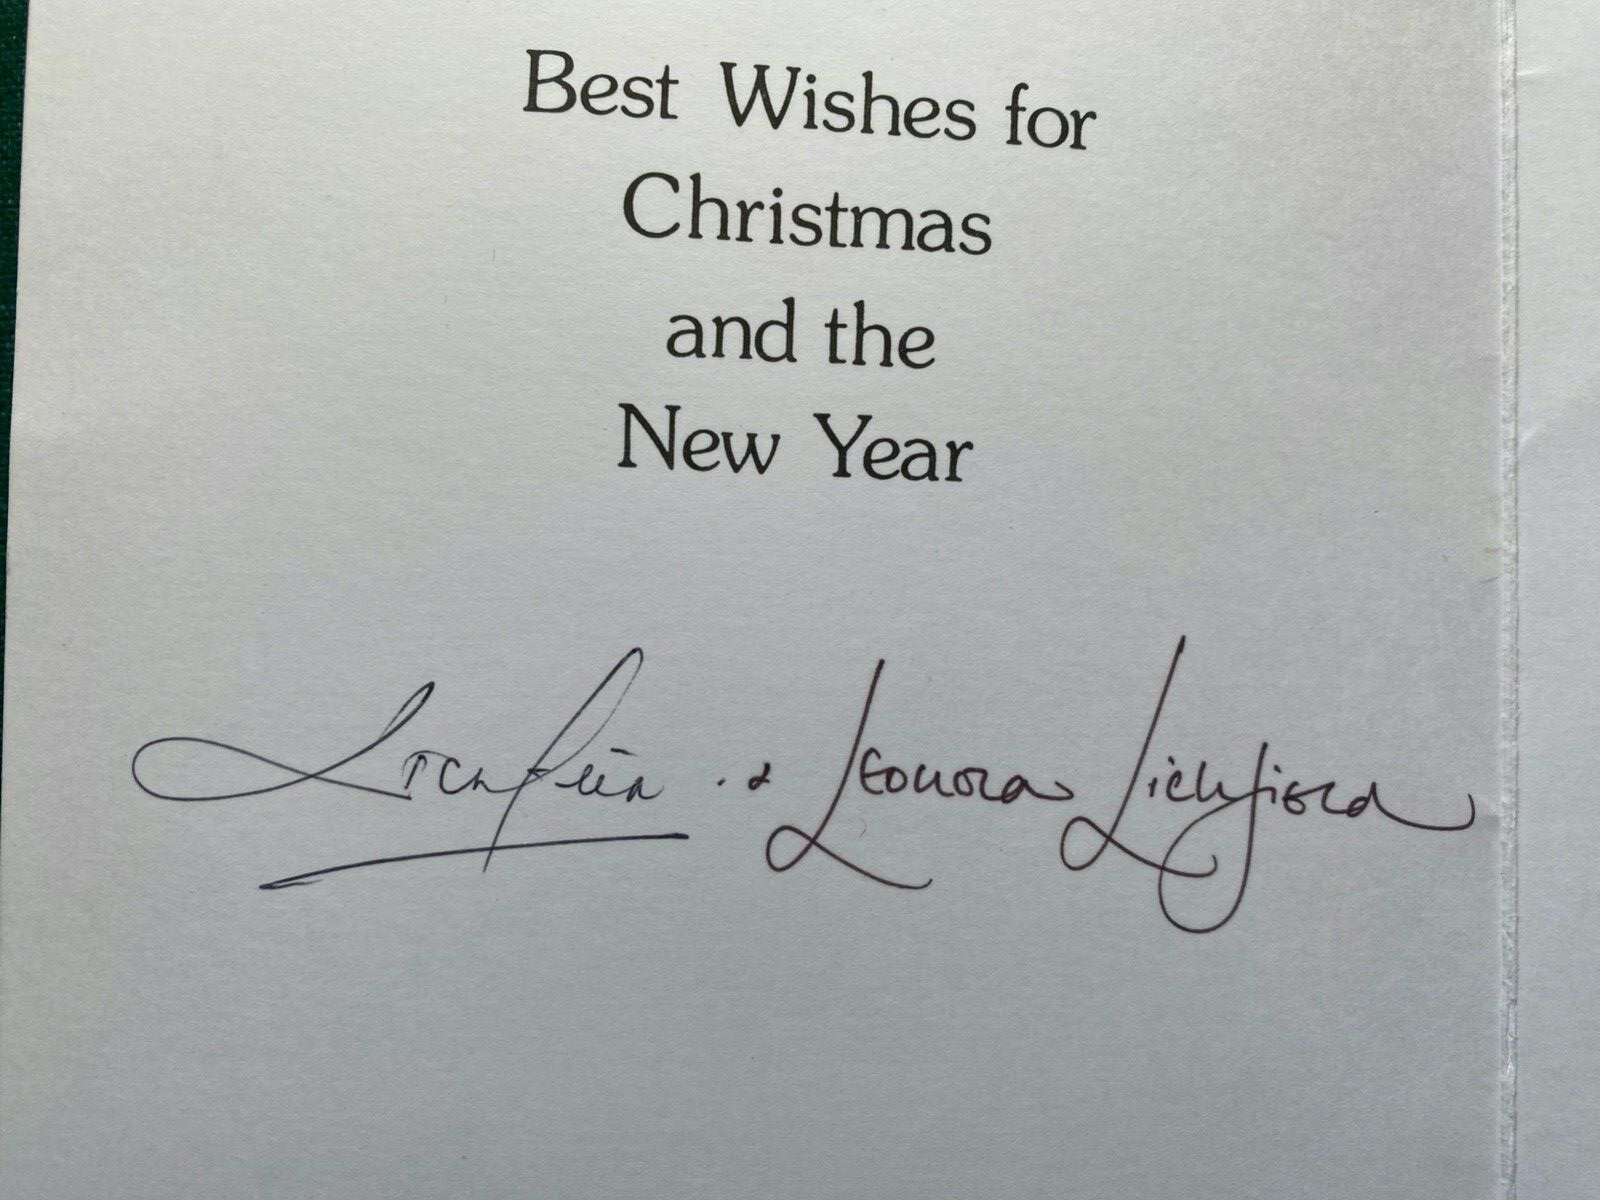 Best Wishes for
Christmas
and the
New Year
Lichfield . & Leonora Lichfield